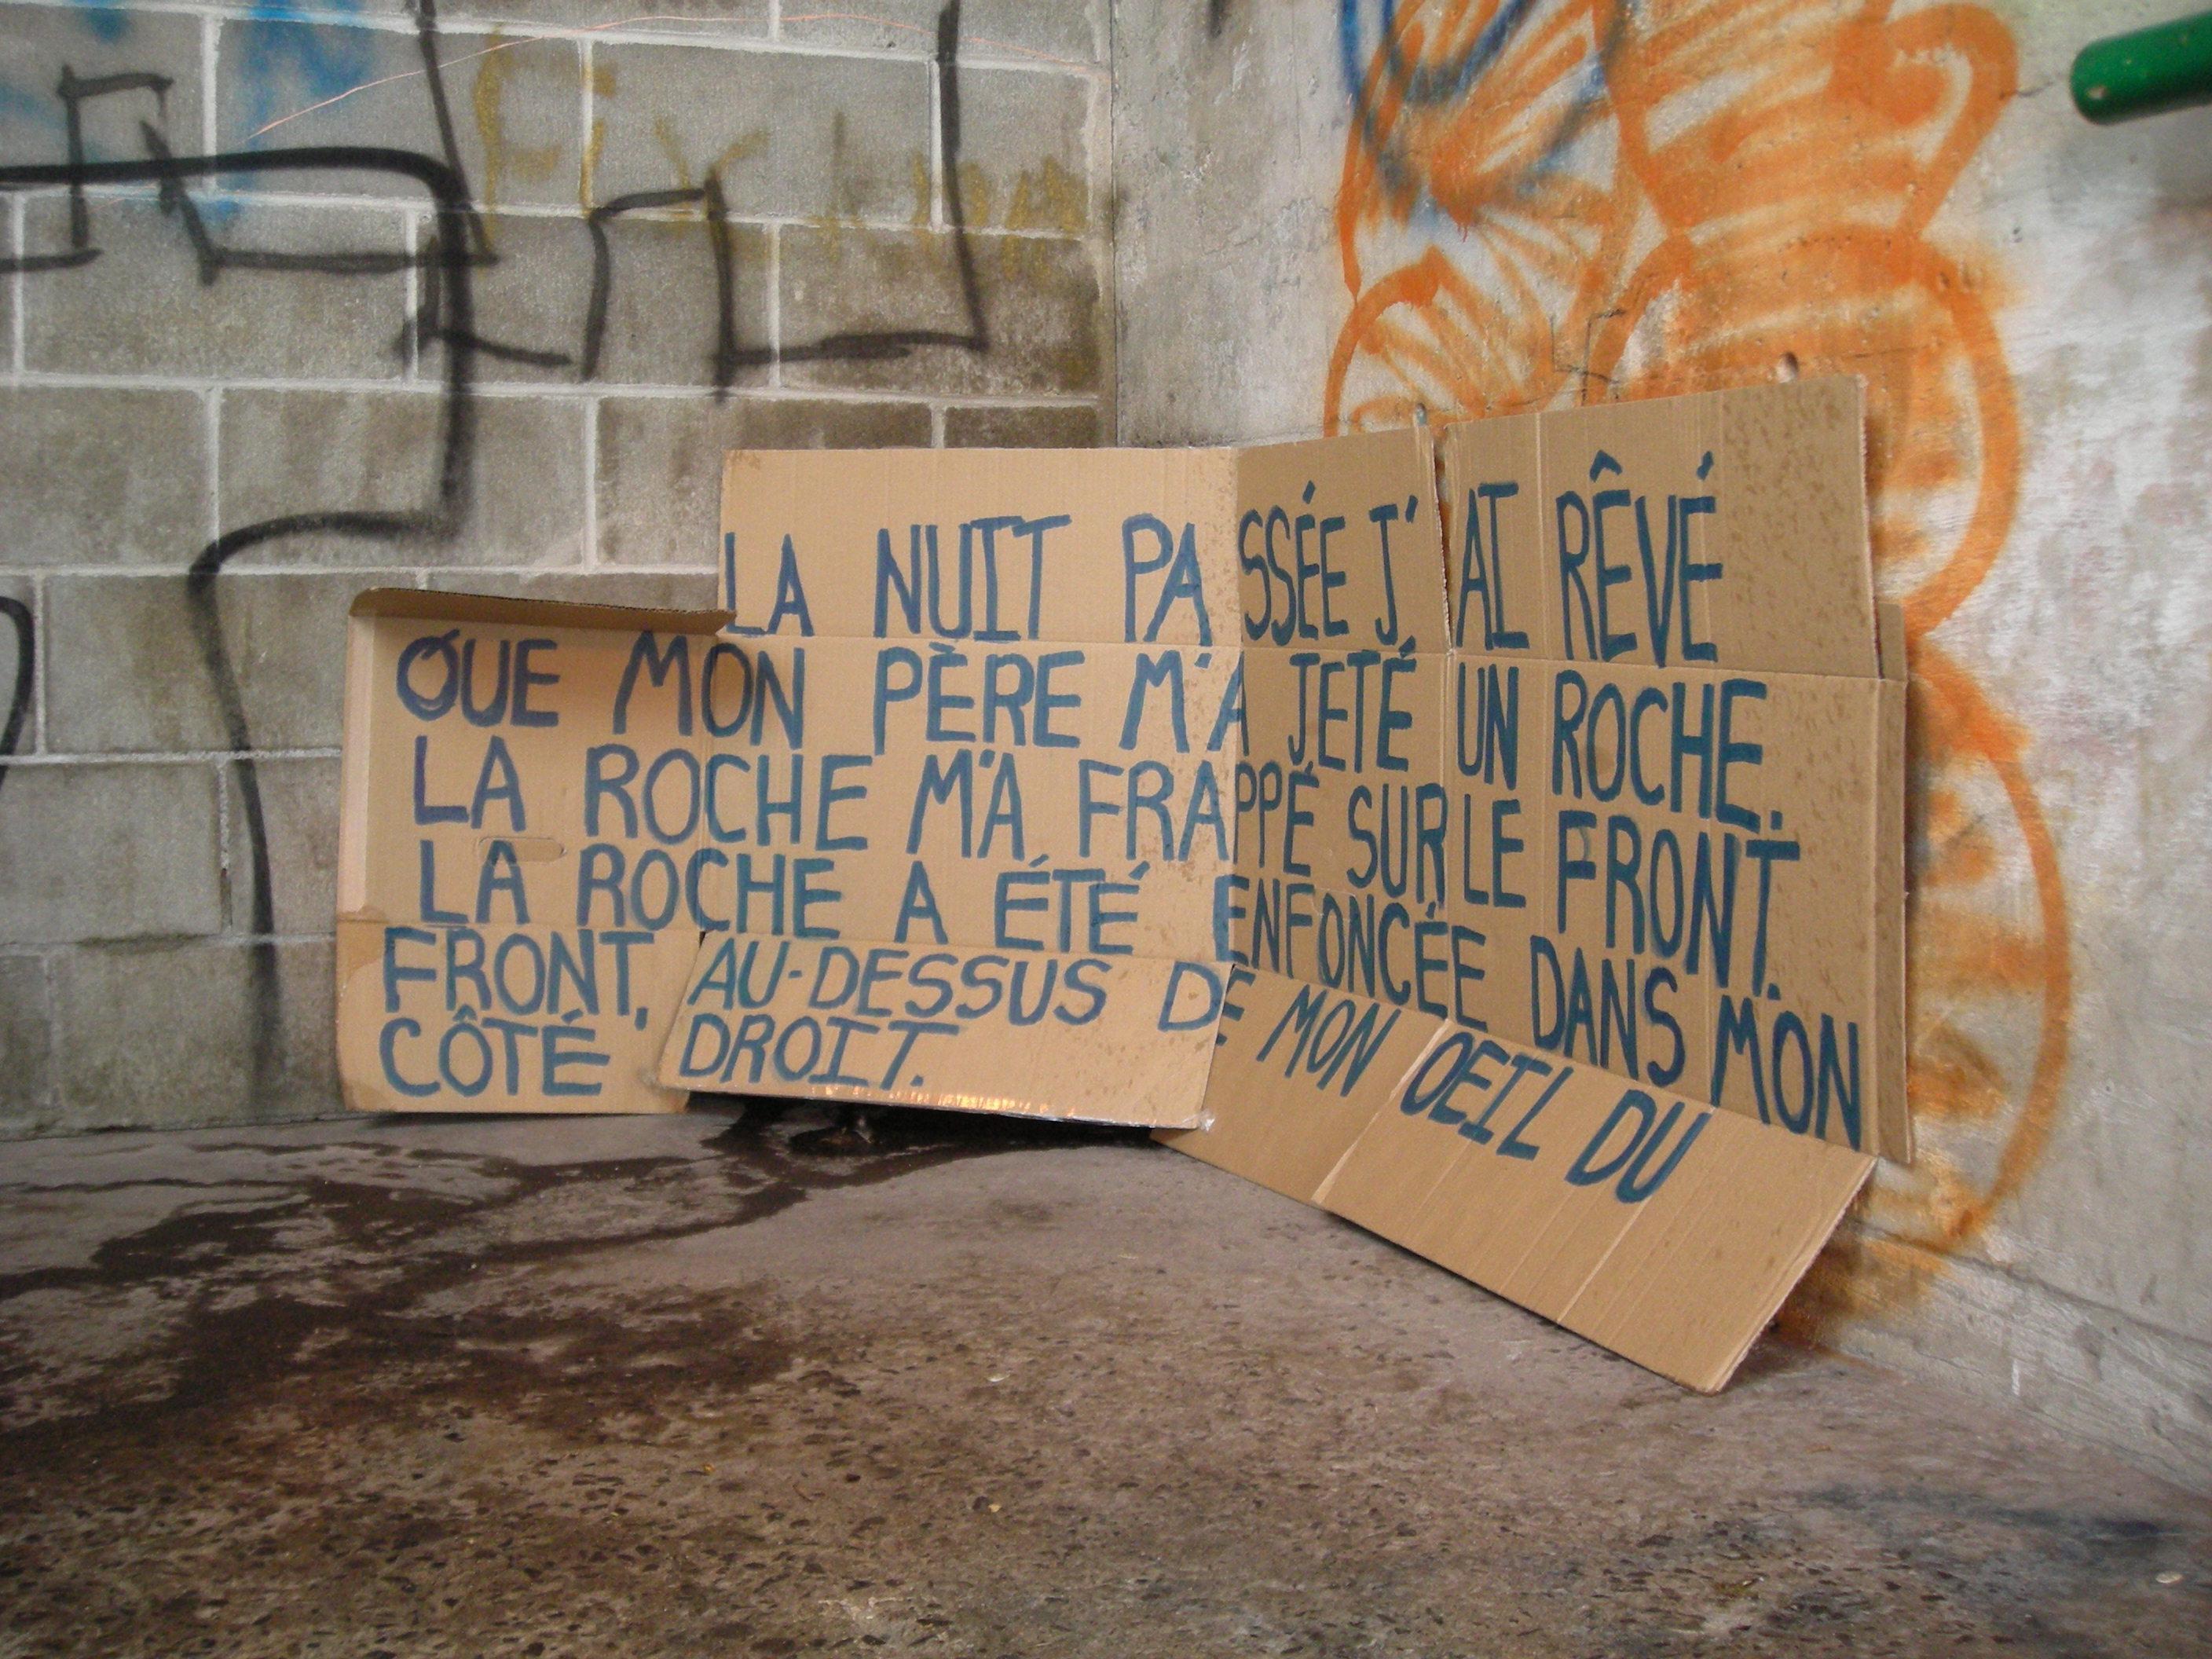 LA NUIT PASSÉE J'AI RÊVÉ
QUE MON PÈRE M'A JETÉ UN ROCHE.
LA ROCHE M'A FRAPPÉ SUR LE FRONT.
LA ROCHE A ÉTÉ ENFONCÉE DANS MON
FRONT, AU-DESSUS DE MON OEIL DU
CÔTÉ DROIT.